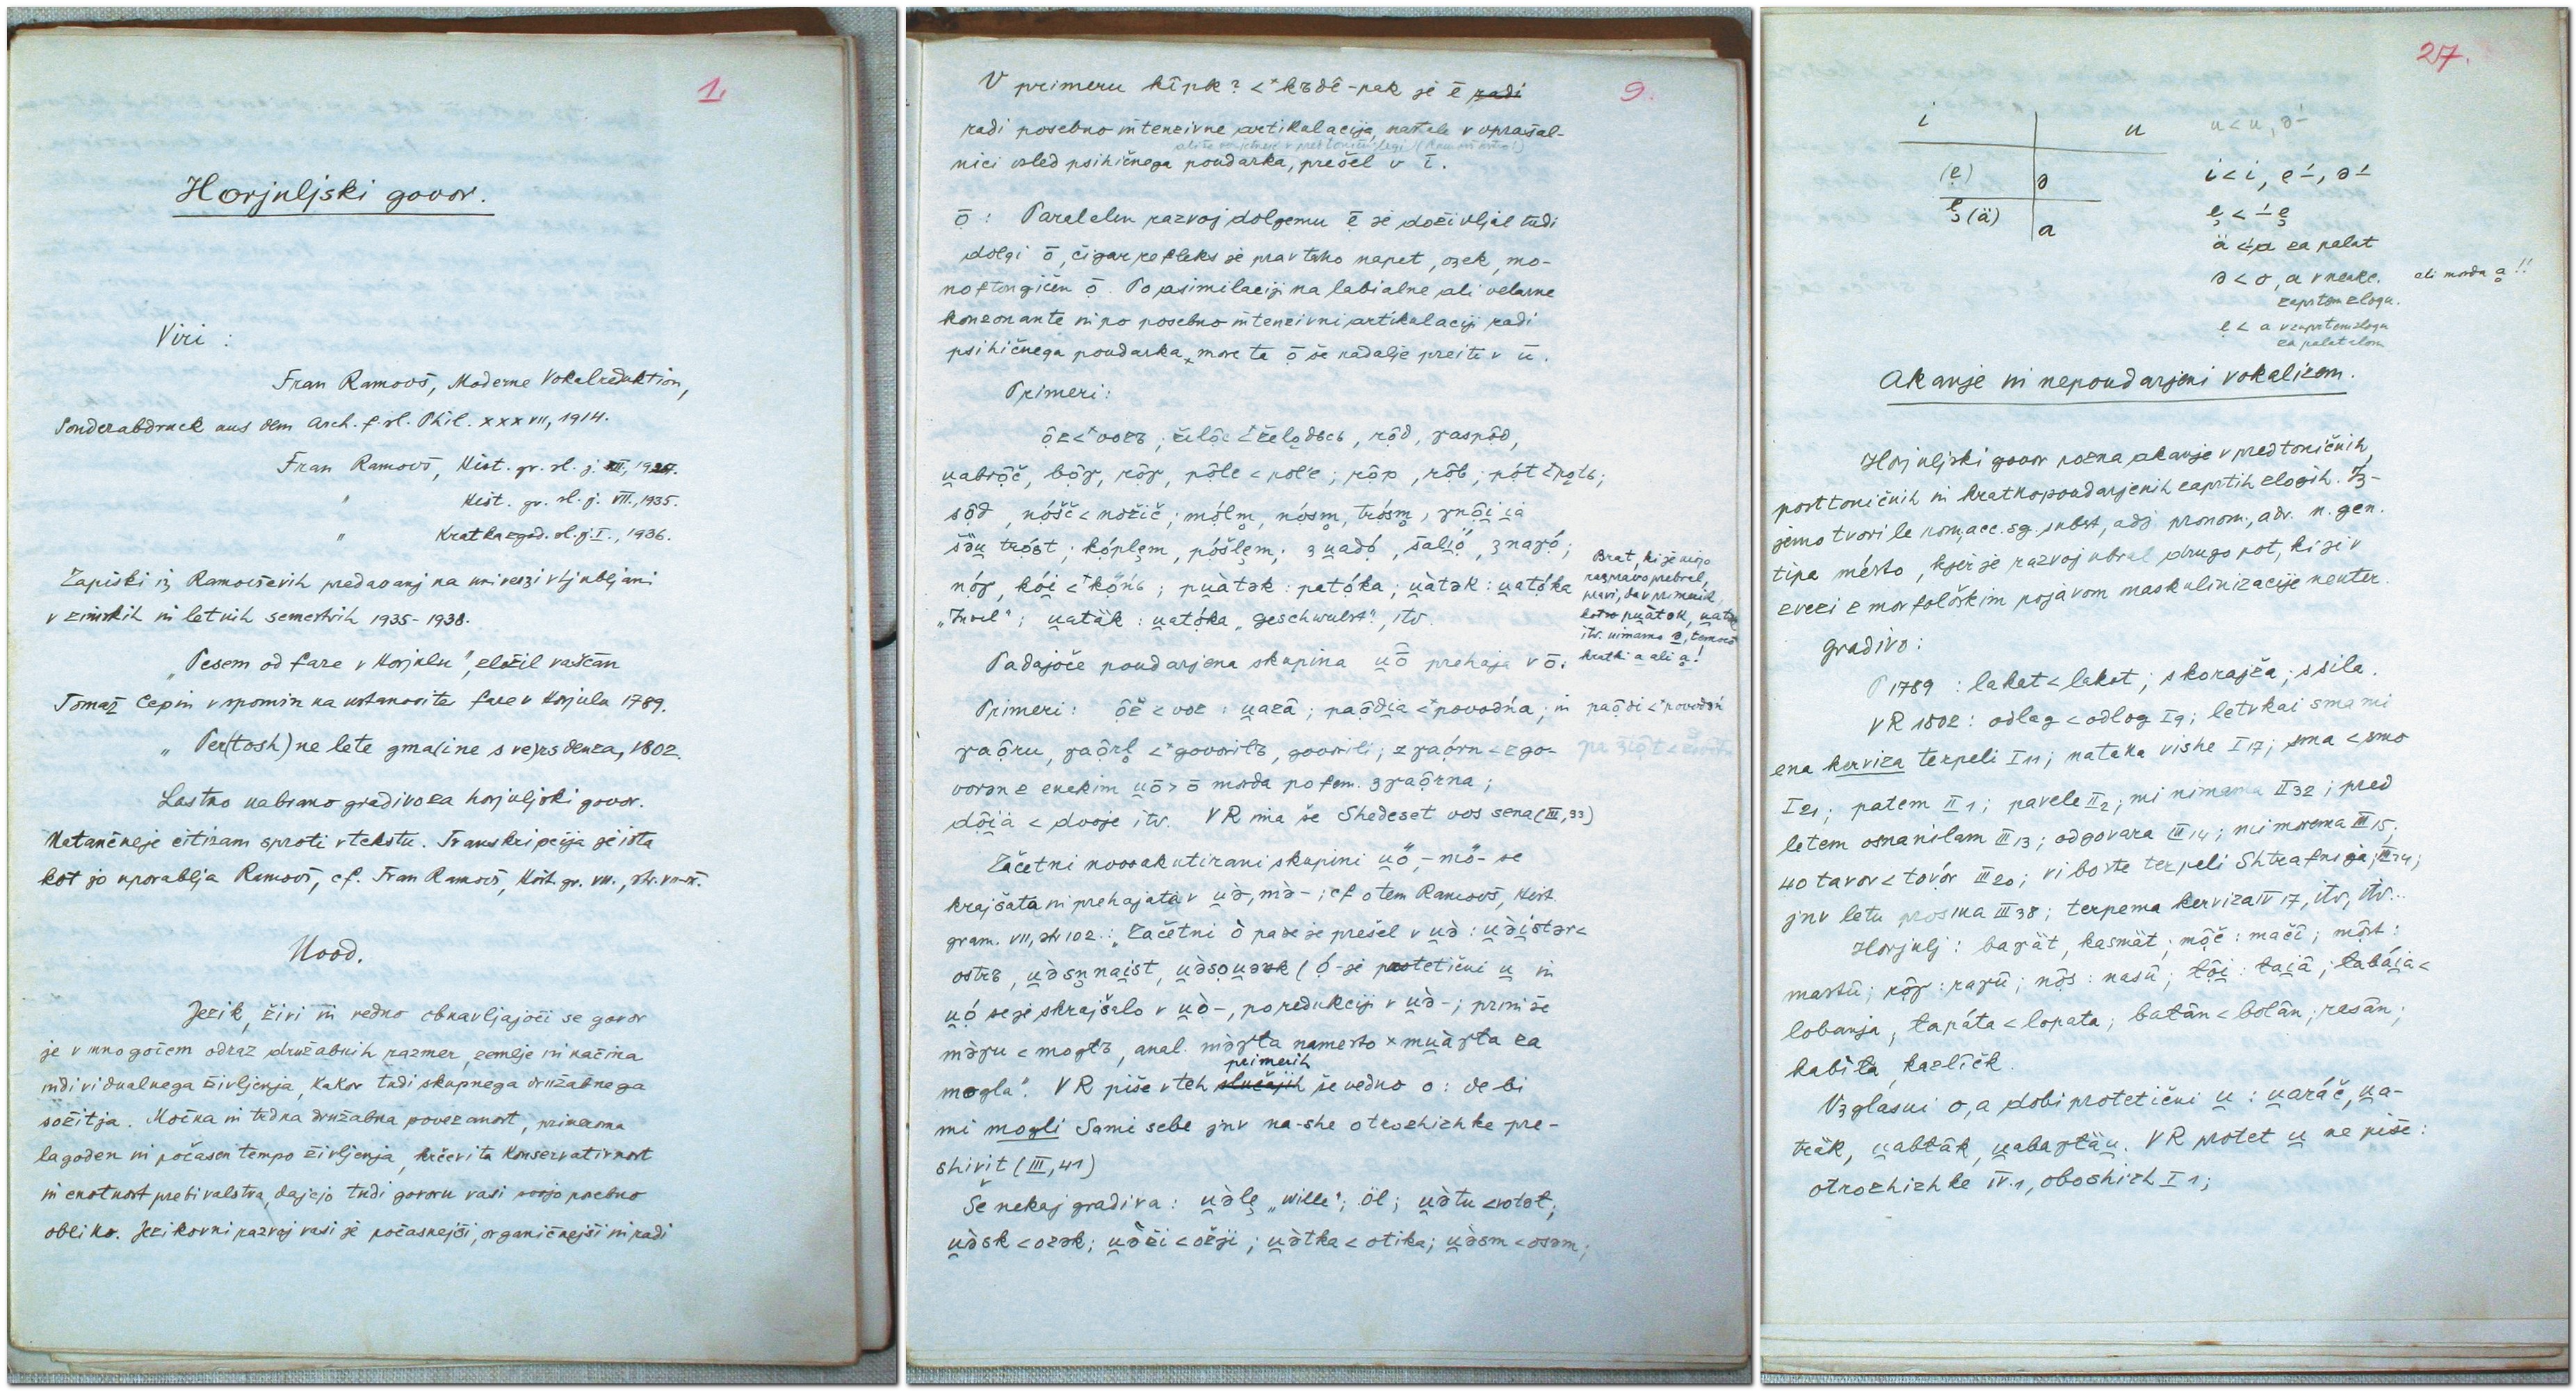 1.
Horjuljski govor.
Viri :
Fran Ramovš, Moderne Vokalreduktion,
Sonderabdruck aus dem Arch. f. sl. Phil. XXXVII, 1914.
Fran Ramovš, Hist. gr. sl. j. II, 1924.
" Hist. gr. sl. j. VII., 1935.
" Kratka zgod. sl. j. I., 1936.
Zapiski iz Ramovševih predavanj na univerzi v Ljubljani
v zimskih in letnih semestrih 1935-1938.
„Pesem od fare v Horjulu", zložil vaščan
Tomaž Čepin v spomin na ustanovitev fare v Horjulu 1789.
„ Per(tosh)ne lete gmaine s ve)rs denza, 1802.
Lastno nabrano gradivo za horjuljski govor.
Natančneje citiram sproti v tekstu. Transkripcija je ista
kot jo uporablja Ramovš, cf. Fran Ramovš, Hist. gr. VII., str. VII-IX.
Uvod.
Jezik, živi in vedno obnavljajoči se govor
je v mnogočem odraz družabnih razmer, zemlje in načina
individualnega življenja, kakor tudi skupnega družabnega
sožitja. Močna in trdna družabna povezanost, primeroma
lagoden in počasen tempo življenja, krčevita konservativnost
in enotnost prebivalstva, dajejo tudi govoru vasi svojo posebno
obliko. Jezikovni razvoj vasi je počasnejši, organičnejši in radi
9.
V primeru kȋpk? <*kъdě̑-pak je ē radi
radi posebno intenzivne artikulacije, nastale v vprašal-
nici vsled psihičnega poudarka, prešel v ī.
ō : Paralelen razvoj dolgemu ē je doživljal tudi
dolgi ō, čigar refleks je prav tako napet, ozek, mo-
noftongičen ọ̄. Po asimilaciji na labialne ali velarne
konzonante in po posebno intenzivni artikulaciji radi
psihičnega poudarka, more ta ō še nadalje preiti v ū.
Primeri:
ọ̑z<*vozъ ; žilọ̑c <želǫdьcь, rọ̑d, γaspọ̑d,
u̯abrọ̑č, bọ̑γ, rọ̑γ, pọ̑le < pol'e ; rọ̑p, rọ̑b ; pọ́t <pǫtь;
sọ̑d, nóšč< nožič ; mọ́lm, nọ́sm, trọ́sm, γnọ̑i̯ i̯a
šə̏u̯ trọ́st ; kọ́plęm, pọ́šlęm ; z u̯adọ́, šalі̯ọ́, z naγọ́ ;
nọ́γ, kọ́i̯ <*kőńь ; pu̯àtək : patọ́ka ; u̯àtək : u̯atọ́ka
; u̯atäk : u̯atọ́ka „geschwulst", itd.
Brat, ki je mojo
razpravo prebral,
pravi, da v primerih
kot so pu̯àtək, u̯atək
itd. nimamo ə, temveč
kratki a ali ạ!
Padajoče poudarjena skupina u̯ō prehaja v ō.
Primeri : ọ̑ž < voz : u̯azȃ ; paọ̑di̯a <*povodńa ; in paọ̑di <*povodəń
γaọ̑ru, γaọ̑rl <*govorilъ, govorili ; z γaọ̑rn < zgo-
vorən z enakim u̯ō > ō morda po fem. zγaọ̑rna ;
dọ̑i̯a < dvoje itd. VR ima še Shedeset vos sena (III, 33)
Začetni novoakutirani skupini u̯ő-, mő- se
krajšata in prehajata v u̯ə̀, mə̀- ; cf o tem Ramovš, Hist.
gram. VII, str 102 : „Začetni ò pa se je prešel v u̯ə̀ : u̯ə̀i̯stər<
ostrъ, u̯ə̀sn̥naist, u̯ə̀sou̯ək (ó- je protetični u̯ in
u̯ó se je skrajšalo v u̯ò-, po redukciji v u̯ə̀- ; primi še
mə̀γu < moglъ, anal. mə̀γta namesto × mu̯àγta za
mogla". VR piše v teh slučajih primerih še vedno o : de bi
mi mogli Sami sebe jnv na-she otrozhizhke pre-
shivit (III, 41)
Še nekaj gradiva : u̯ə̀lę „Wille"; öl ; u̯ə̀tu <votəl;
u̯ə̀sk <ozək ; u̯ə̀ži <ožji ; u̯ə̀tka < otika ; u̯ə̀sm <osəm ;
27.
i u u < u, ə-
(ẹ) ə i < i, ẹ-́, ə-́
ę (ä) a ę < -́ ę
ä < -́a za palat
ə < o, a v neakc. ali morda ạ !!
zaprtem zlogu.
ẹ < a v zaprtem zlogu
za palatalom
Akanje in nepoudarjeni vokalizem.
Horjuljski govor pozna akanje v predtoničnih,
posttoničnih in kratkopoudarjenih zaprtih zlogih. Iz-
jemo tvori le nom, acc. sg. subst, adj, pronom, adv. n. gen.
tipa mésto, kjer je razvoj ubral drugo pot, ki je v
zvezi z morfološkim pojavom maskulinizacije neuter.
gradivo :
P 1789 : lakat < lakot ; skorajža ; ssila.
VR 1802 : odlag < odlog I9 ; letvkai sma mi
ena kerviza terpeli I11 ; nataka vishe I17 ; sma < smo
I21 ; patem II1 ; pavele II2 ; mi nimama II32 ; pred
letem osnanilam III13 ; odgovara III14 ; mi morema III15 ;
40 tavor < továr III20 ; vi boste terpeli Shtrafniga III24 ;
jnv letu prosma III38 ; terpema kerviza IV17, itd, itd...
Horjulj : baγät, kasmät ; mọ̑č : mačȋ ; mọ̑st :
mastȗ ; rọ̑γ : raγȗ ; nọ̑s : nasȗ ; tọ̑i̯ : tai̯ȃ ; tabái̯a <
lobanja, tapáta < lopata ; batȃn < botȃn ; rasȃn ;
kabíta, kazlíčk.
Vzglasni o, a dobi protetični u̯ : u̯aráč, u̯a-
träk, u̯abták, u̯abaγtäu̯. VR protet u̯ ne piše :
otrozhizhke IV.1, oboshizh I 1;